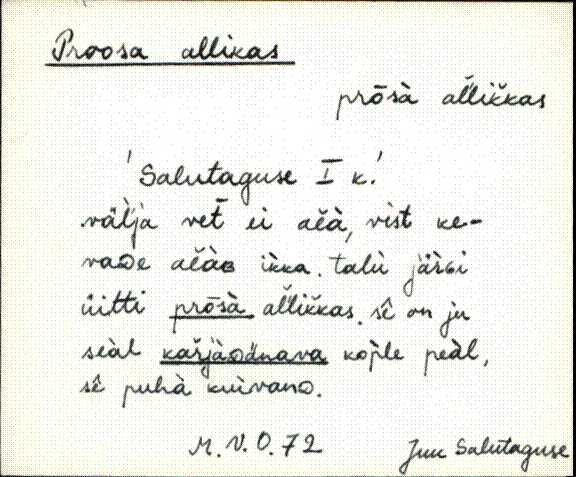 Proosa allikas
prōsà al̆lik̆kas
'Salutaguse I k.'
väl̀ja vet̄ ei aĕà, vist ke-
vaᴅe aĕàʙ ikka. talù järʙi
üitti prōsà al̆lik̆kas. sê on ju
seàl kar̆jàᴅänava kop̀le peàl,
sê puhà kuìvanᴅ.
M.V.O.72 Juu Salutaguse